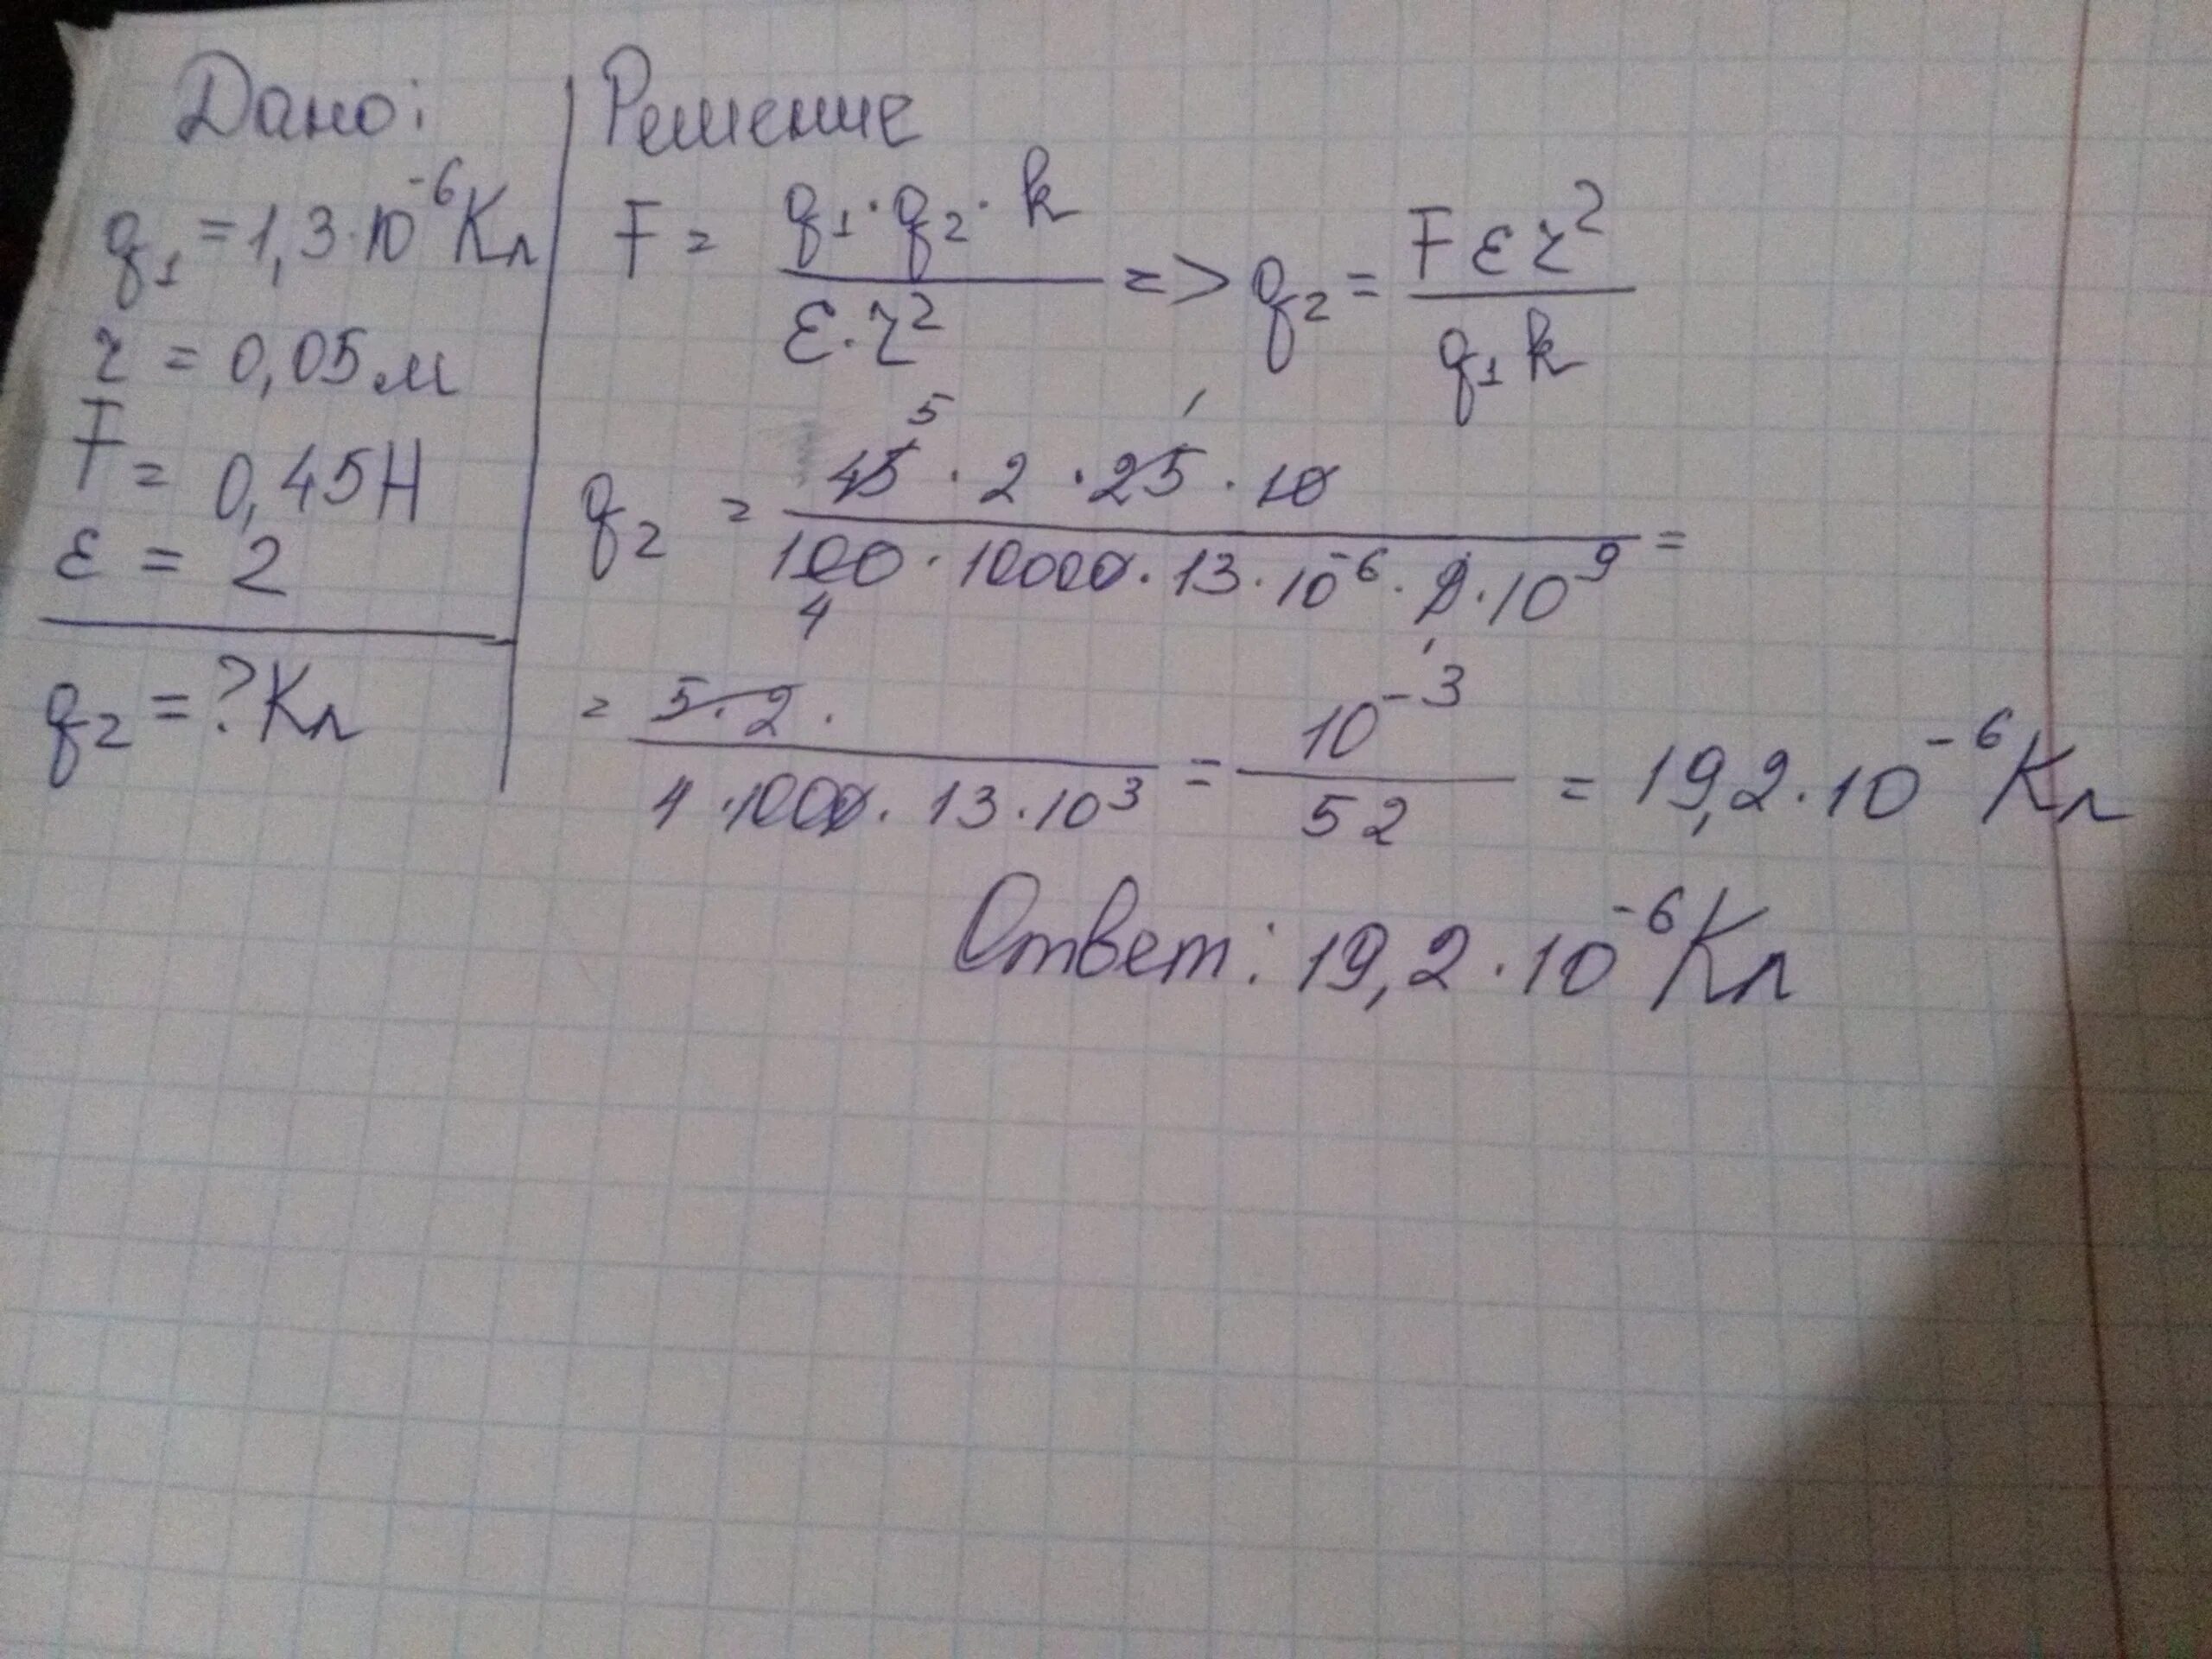 Дано:
q₁ = 1,3·10⁻⁶Кл
r = 0,05м
F = 0,45Н
ε = 2
q₂ = ? Кл
Решение
F = q₁·q₂·k / ε·r² => q₂ = Fεr² / q₁k
q₂ = 45·2·25·10 / 100·10000·13·10⁻⁶·9·10⁹ =
5 1
4 1
= 5·2· / 4·1000·13·10³ = 10⁻³ / 52 = 19,2·10⁻⁶Кл
Ответ: 19,2·10⁻⁶Кл